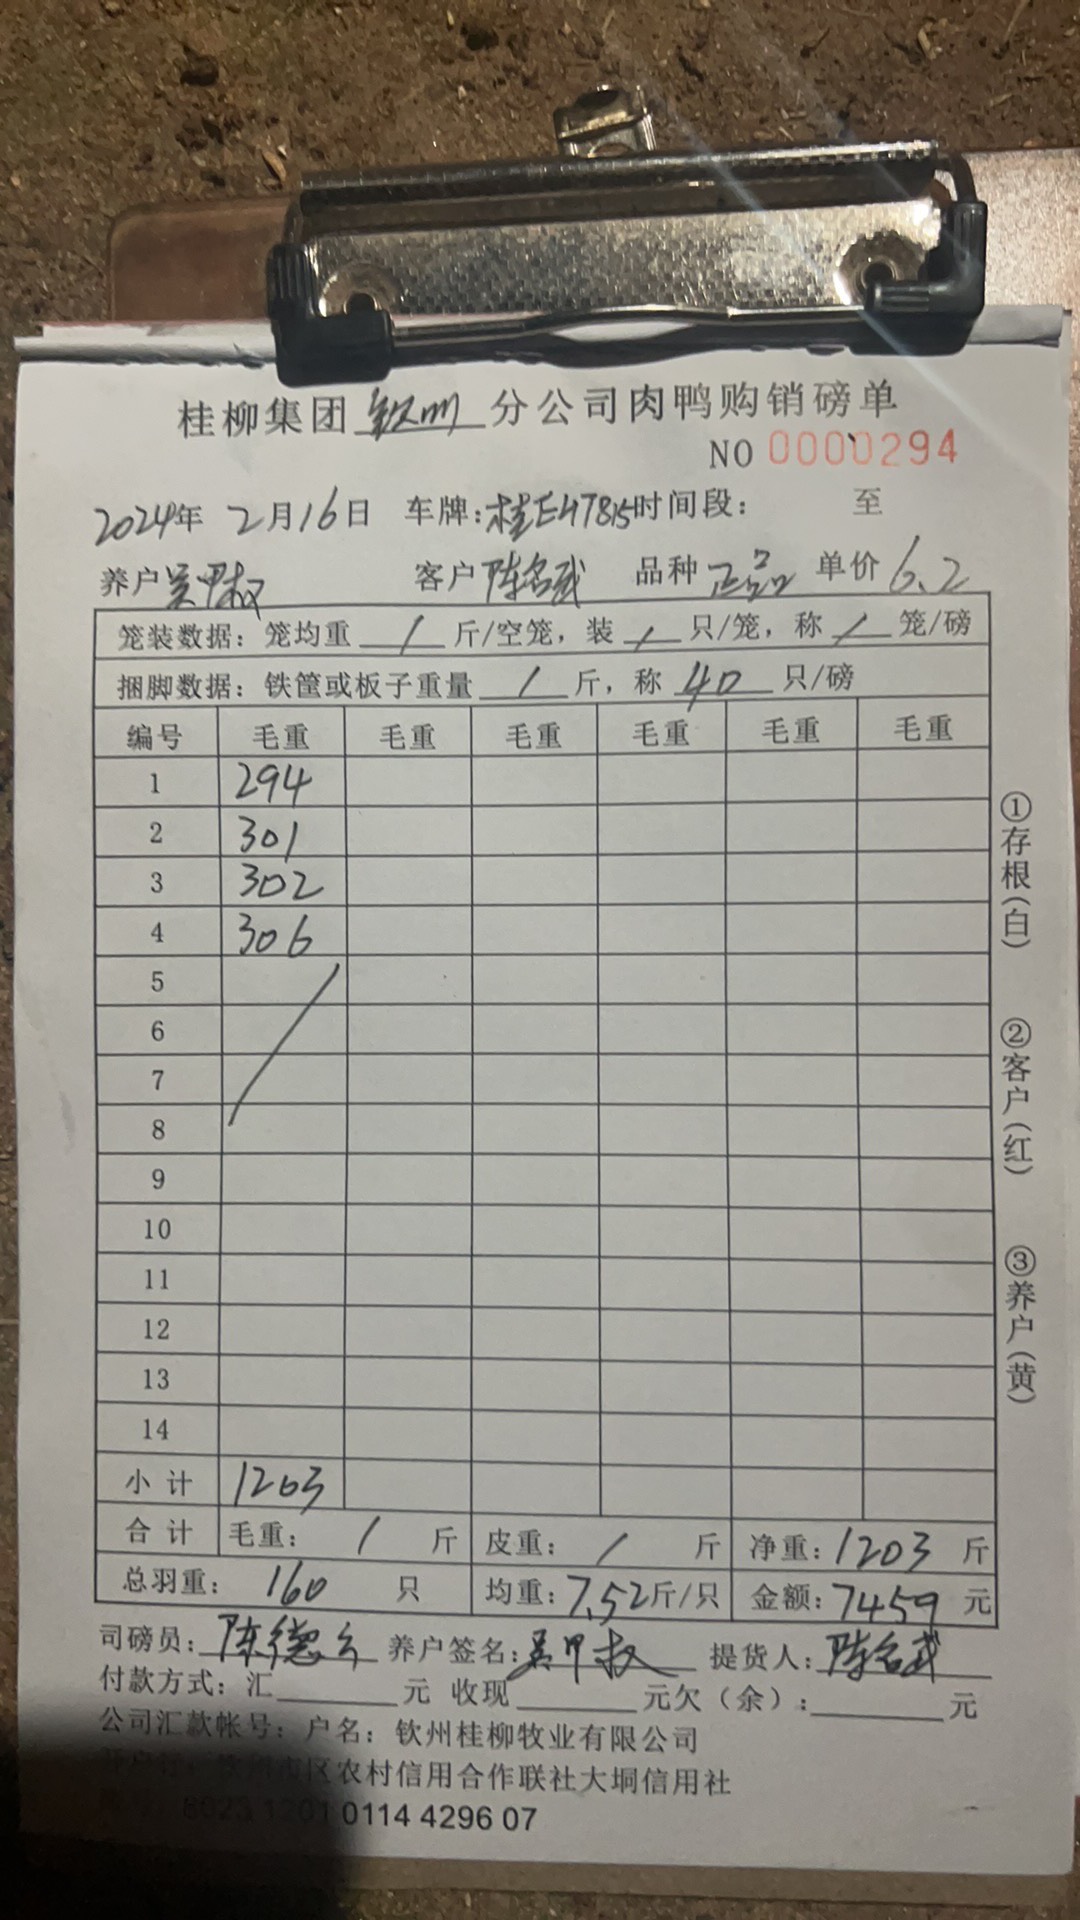 桂柳集团 钦州 分公司肉鸭购销磅单
NO 0000294
2024年 2月16日 车牌:桂E47815 时间段: 至
养户 吴甲权 客户 陈名武 品种 正品 单价 6.2
笼装数据: 笼均重 / 斤/空笼, 装 / 只/笼, 称 / 笼/磅
捆脚数据: 铁筐或板子重量 / 斤, 称 40 只/磅
编号 毛重 毛重 毛重 毛重 毛重 毛重
1 294
2 301
3 302
4 306
5
6
7
8
9
10
11
12
13
14
小计 1203
合计 毛重: / 斤 皮重: / 斤 净重: 1203 斤
总羽重: 160 只 均重: 7.52 斤/只 金额: 7459 元
司磅员: 陈德 养户签名: 吴甲权 提货人: 陈名武
付款方式: 汇 元 收现 元欠(余): 元
公司汇款帐号: 户名: 钦州桂柳牧业有限公司
开户行: 钦州市区农村信用合作联社大垌信用社
6023 1201 0114 4296 07
①存根(白) ②客户(红) ③养户(黄)